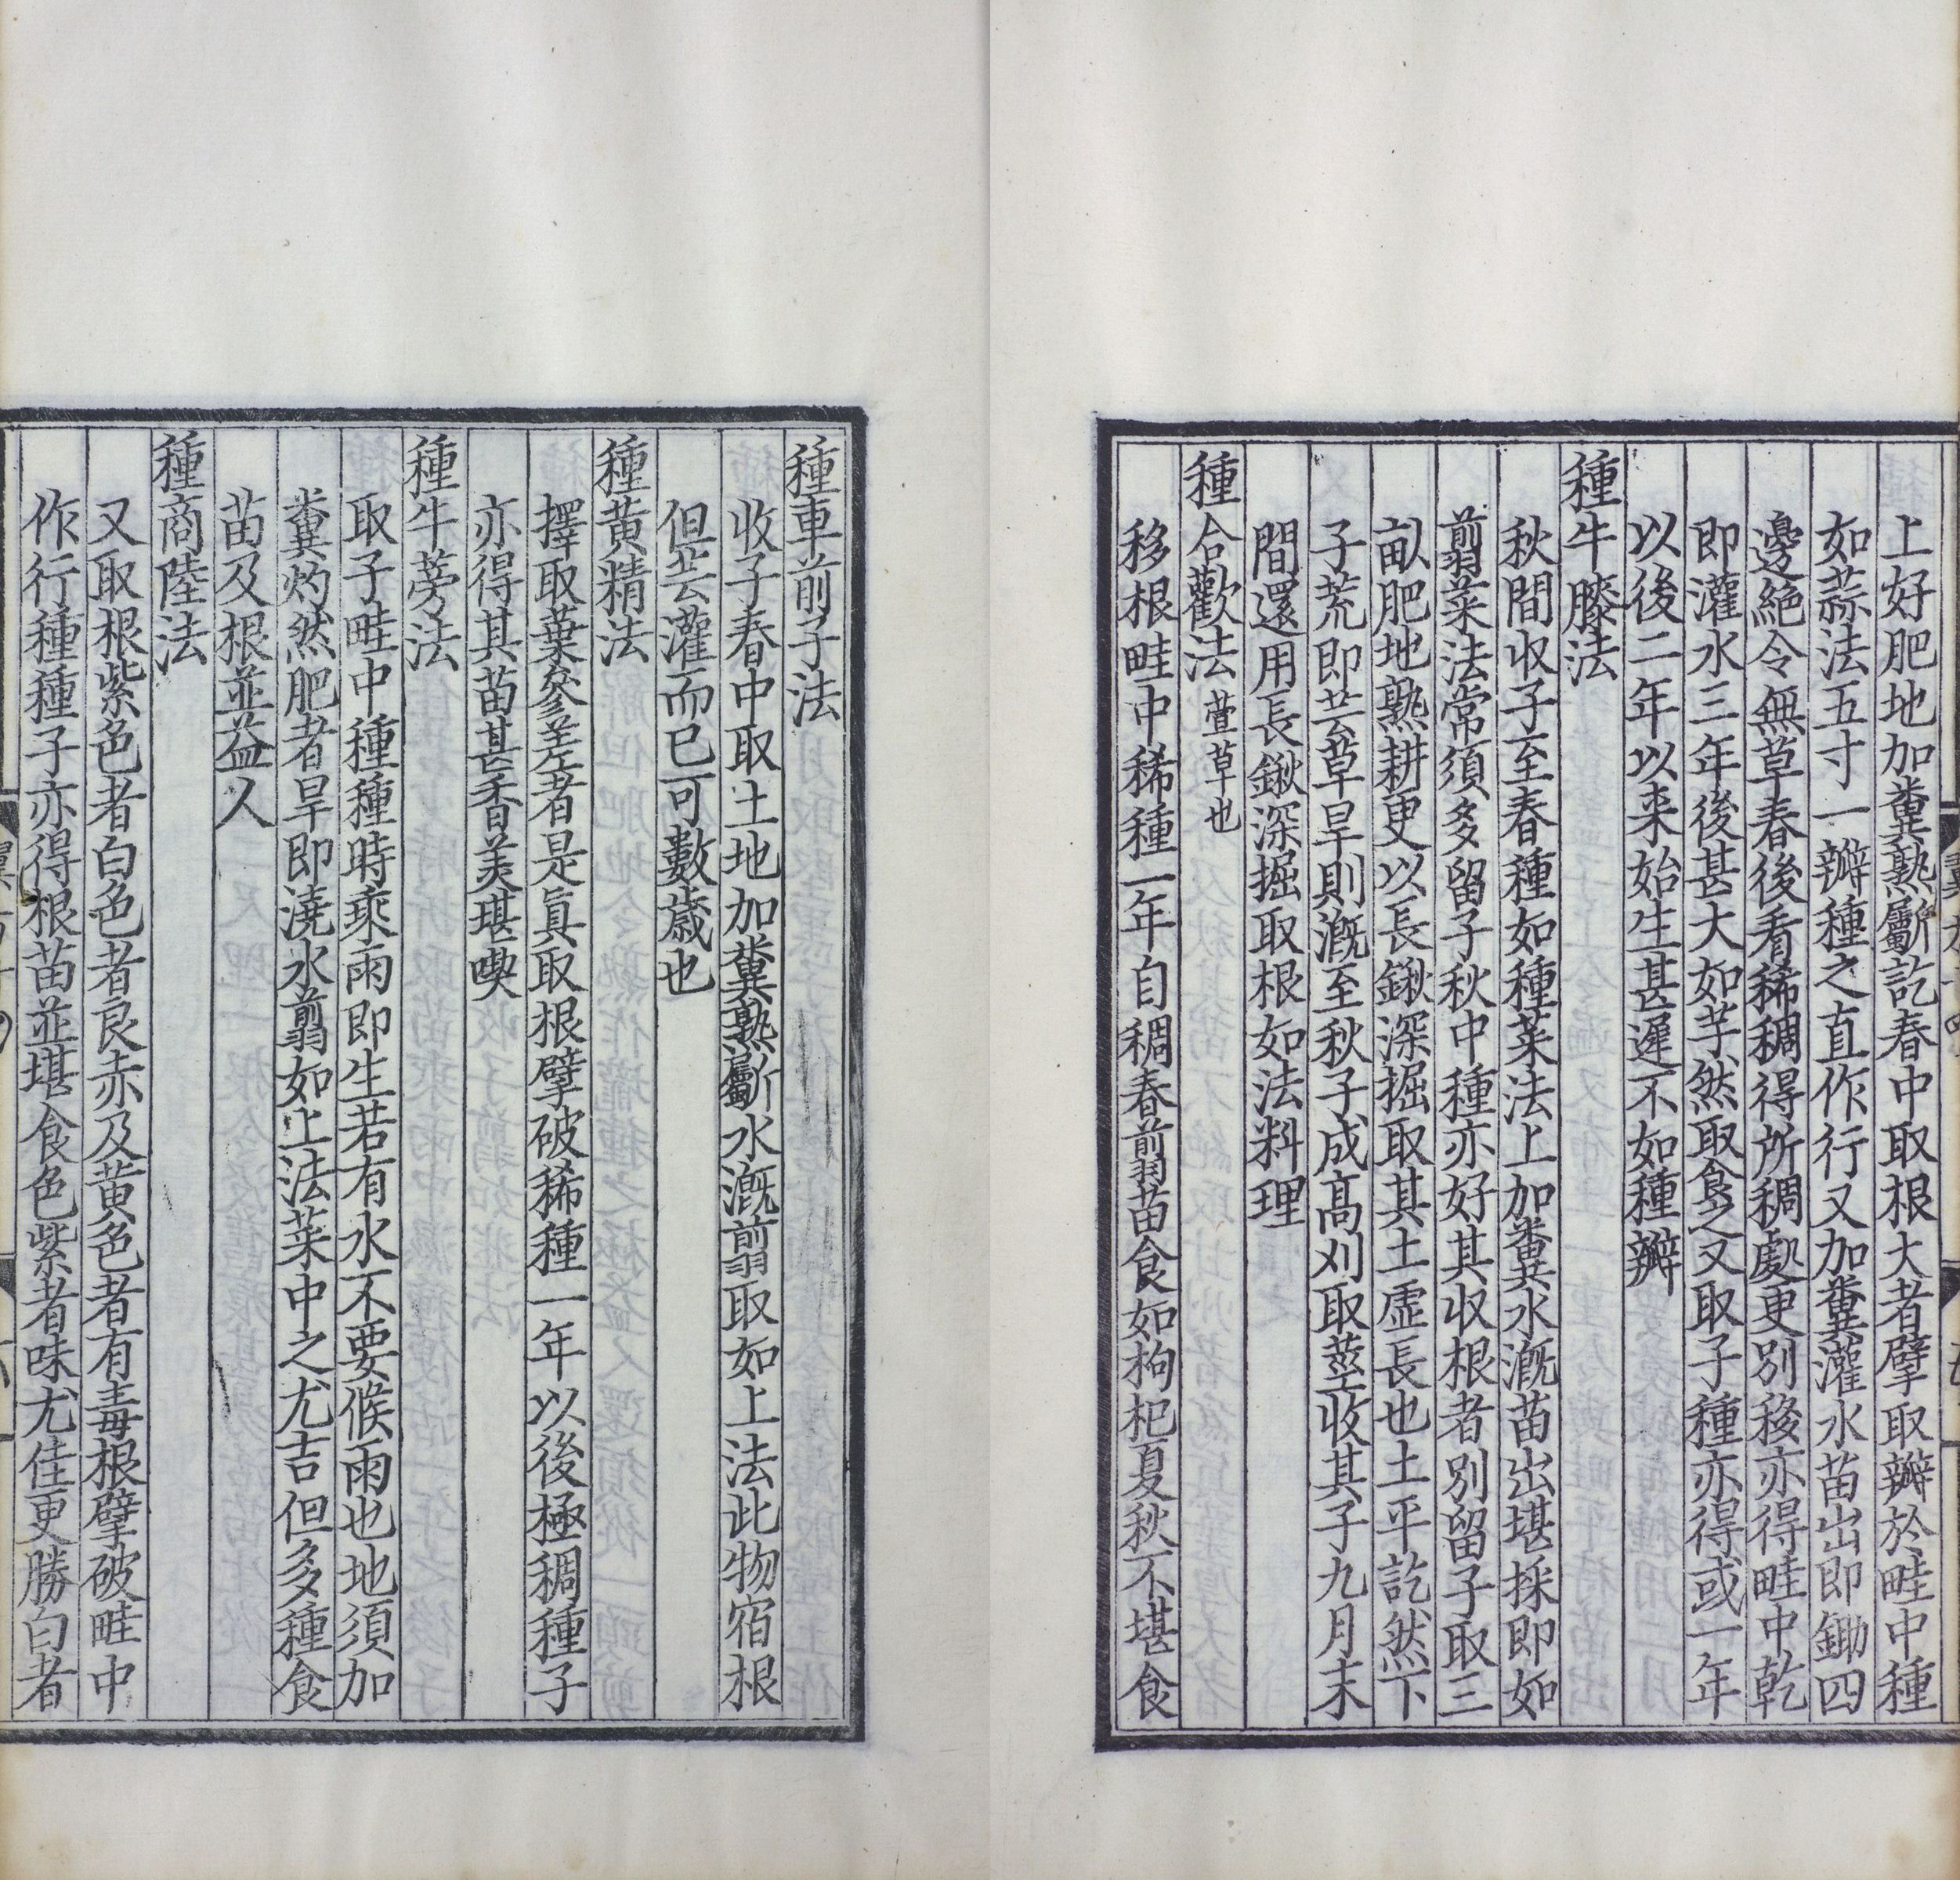 上好肥地加糞熟斸訖春中取根大者擘取瓣於畦中種
如蒜法五寸一瓣種之直作行又加糞灌水苗出即鋤四
邊絕令無草春後看稀稠得所稠處更別移亦得畦中乾
即灌水三年後甚大如芋然取食之又取子種亦得或一年
以後二年以來始生甚遲不如種瓣
種牛膝法
秋間收子至春種如種菜法上加糞水溉苗出堪採即如
翦菜法常須多留子秋中種亦好其收根者別留子取三
畝肥地熟耕更以長鍬深掘取其土虛長也土平訖然下
子荒即芸草旱則溉至秋子成高刈取莖收其子九月末
間還用長鍬深掘取根如法料理
種合歡法萱草也
移根畦中稀種一年自稠春翦苗食如枸杞夏秋不堪食
種車前子法
收子春中取土地加糞熟斸水溉翦取如上法此物宿根
但芸灌而已可數歲也
種黃精法
擇取葉參差者是真取根擘破稀種一年以後極稠種子
亦得其苗甚香美堪喫
種牛蒡法
取子畦中種種時乘雨即生若有水不要候雨也地須加
糞灼然肥者旱即澆水翦如上法菜中之尤吉但多種食
苗及根並益人
種商陸法
又取根紫色者白色者良赤及黃色者有毒根擘破畦中
作行種種子亦得根苗並堪食色紫者味尤佳更勝白者